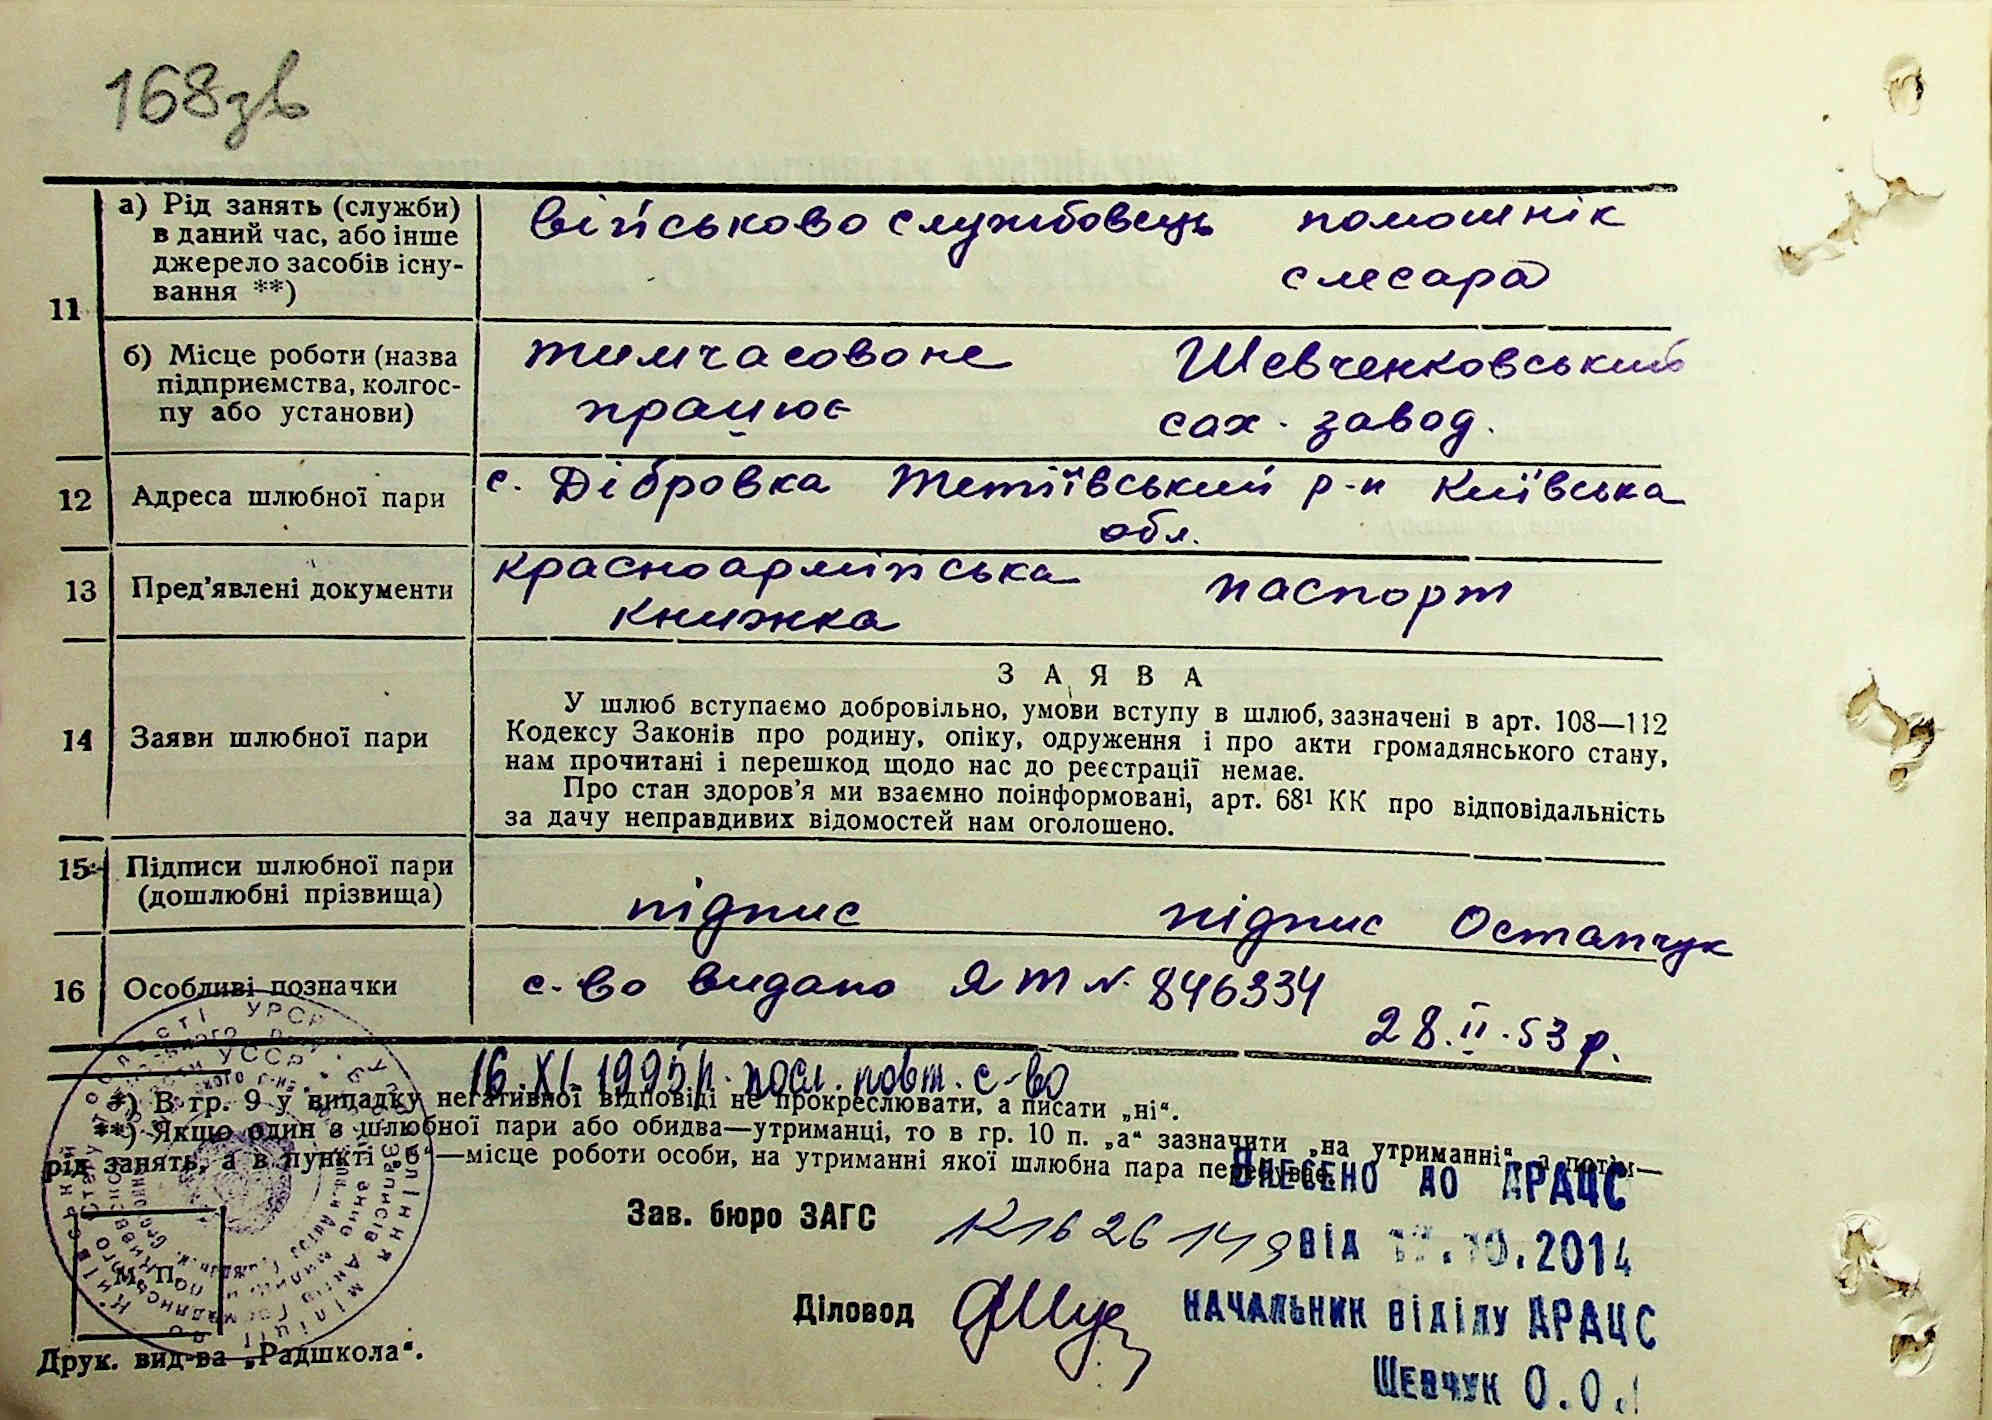 168зв
11
а) Рід занять (служби)
в даний час, або інше
джерело засобів існу-
вання **)
військовослужбовець помошнік
слесара
б) Місце роботи (назва
підприємства, колгос-
пу або установи)
тимчасовоне Шевченковський
працює сах. завод.
12 Адреса шлюбної пари
с. Дібровка Тетіївський р-н Київська
обл.
13 Пред’явлені документи
красноармійська паспорт
книжка
14 Заяви шлюбної пари
ЗАЯВА
У шлюб вступаємо добровільно, умови вступу в шлюб, зазначені в арт. 108—112
Кодексу Законів про родину, опіку, одруження і про акти громадянського стану,
нам прочитані і перешкод щодо нас до реєстрації немає.
Про стан здоров’я ми взаємно поінформовані, арт. 68¹ КК про відповідальність
за дачу неправдивих відомостей нам оголошено.
15 Підписи шлюбної пари
(дошлюбні прізвища)
підпис підпис Остапчук
16 Особливі позначки
с-во видано ЯТ № 846334
28.II.53 р.
16.XI.1995р. посл. повт. с-во
*) В гр. 9 у випадку негативної відповіді не прокреслювати, а писати „ні“.
**) Якщо один з шлюбної пари або обидва—утриманці, то в гр. 10 п. „а“ зазначити „на утриманні“, а потім—
рід занять, а в пункті „б“—місце роботи особи, на утриманні якої шлюбна пара перебуває.
ВНЕСЕНО ДО ДРАЦС
Зав. бюро ЗАГС
ВІД 10.2014
М. П.
Діловод
НАЧАЛЬНИК ВІДІЛУ ДРАЦС
ШЕВЧУК О.О.
Друк. вид-ва „Радшкола“.